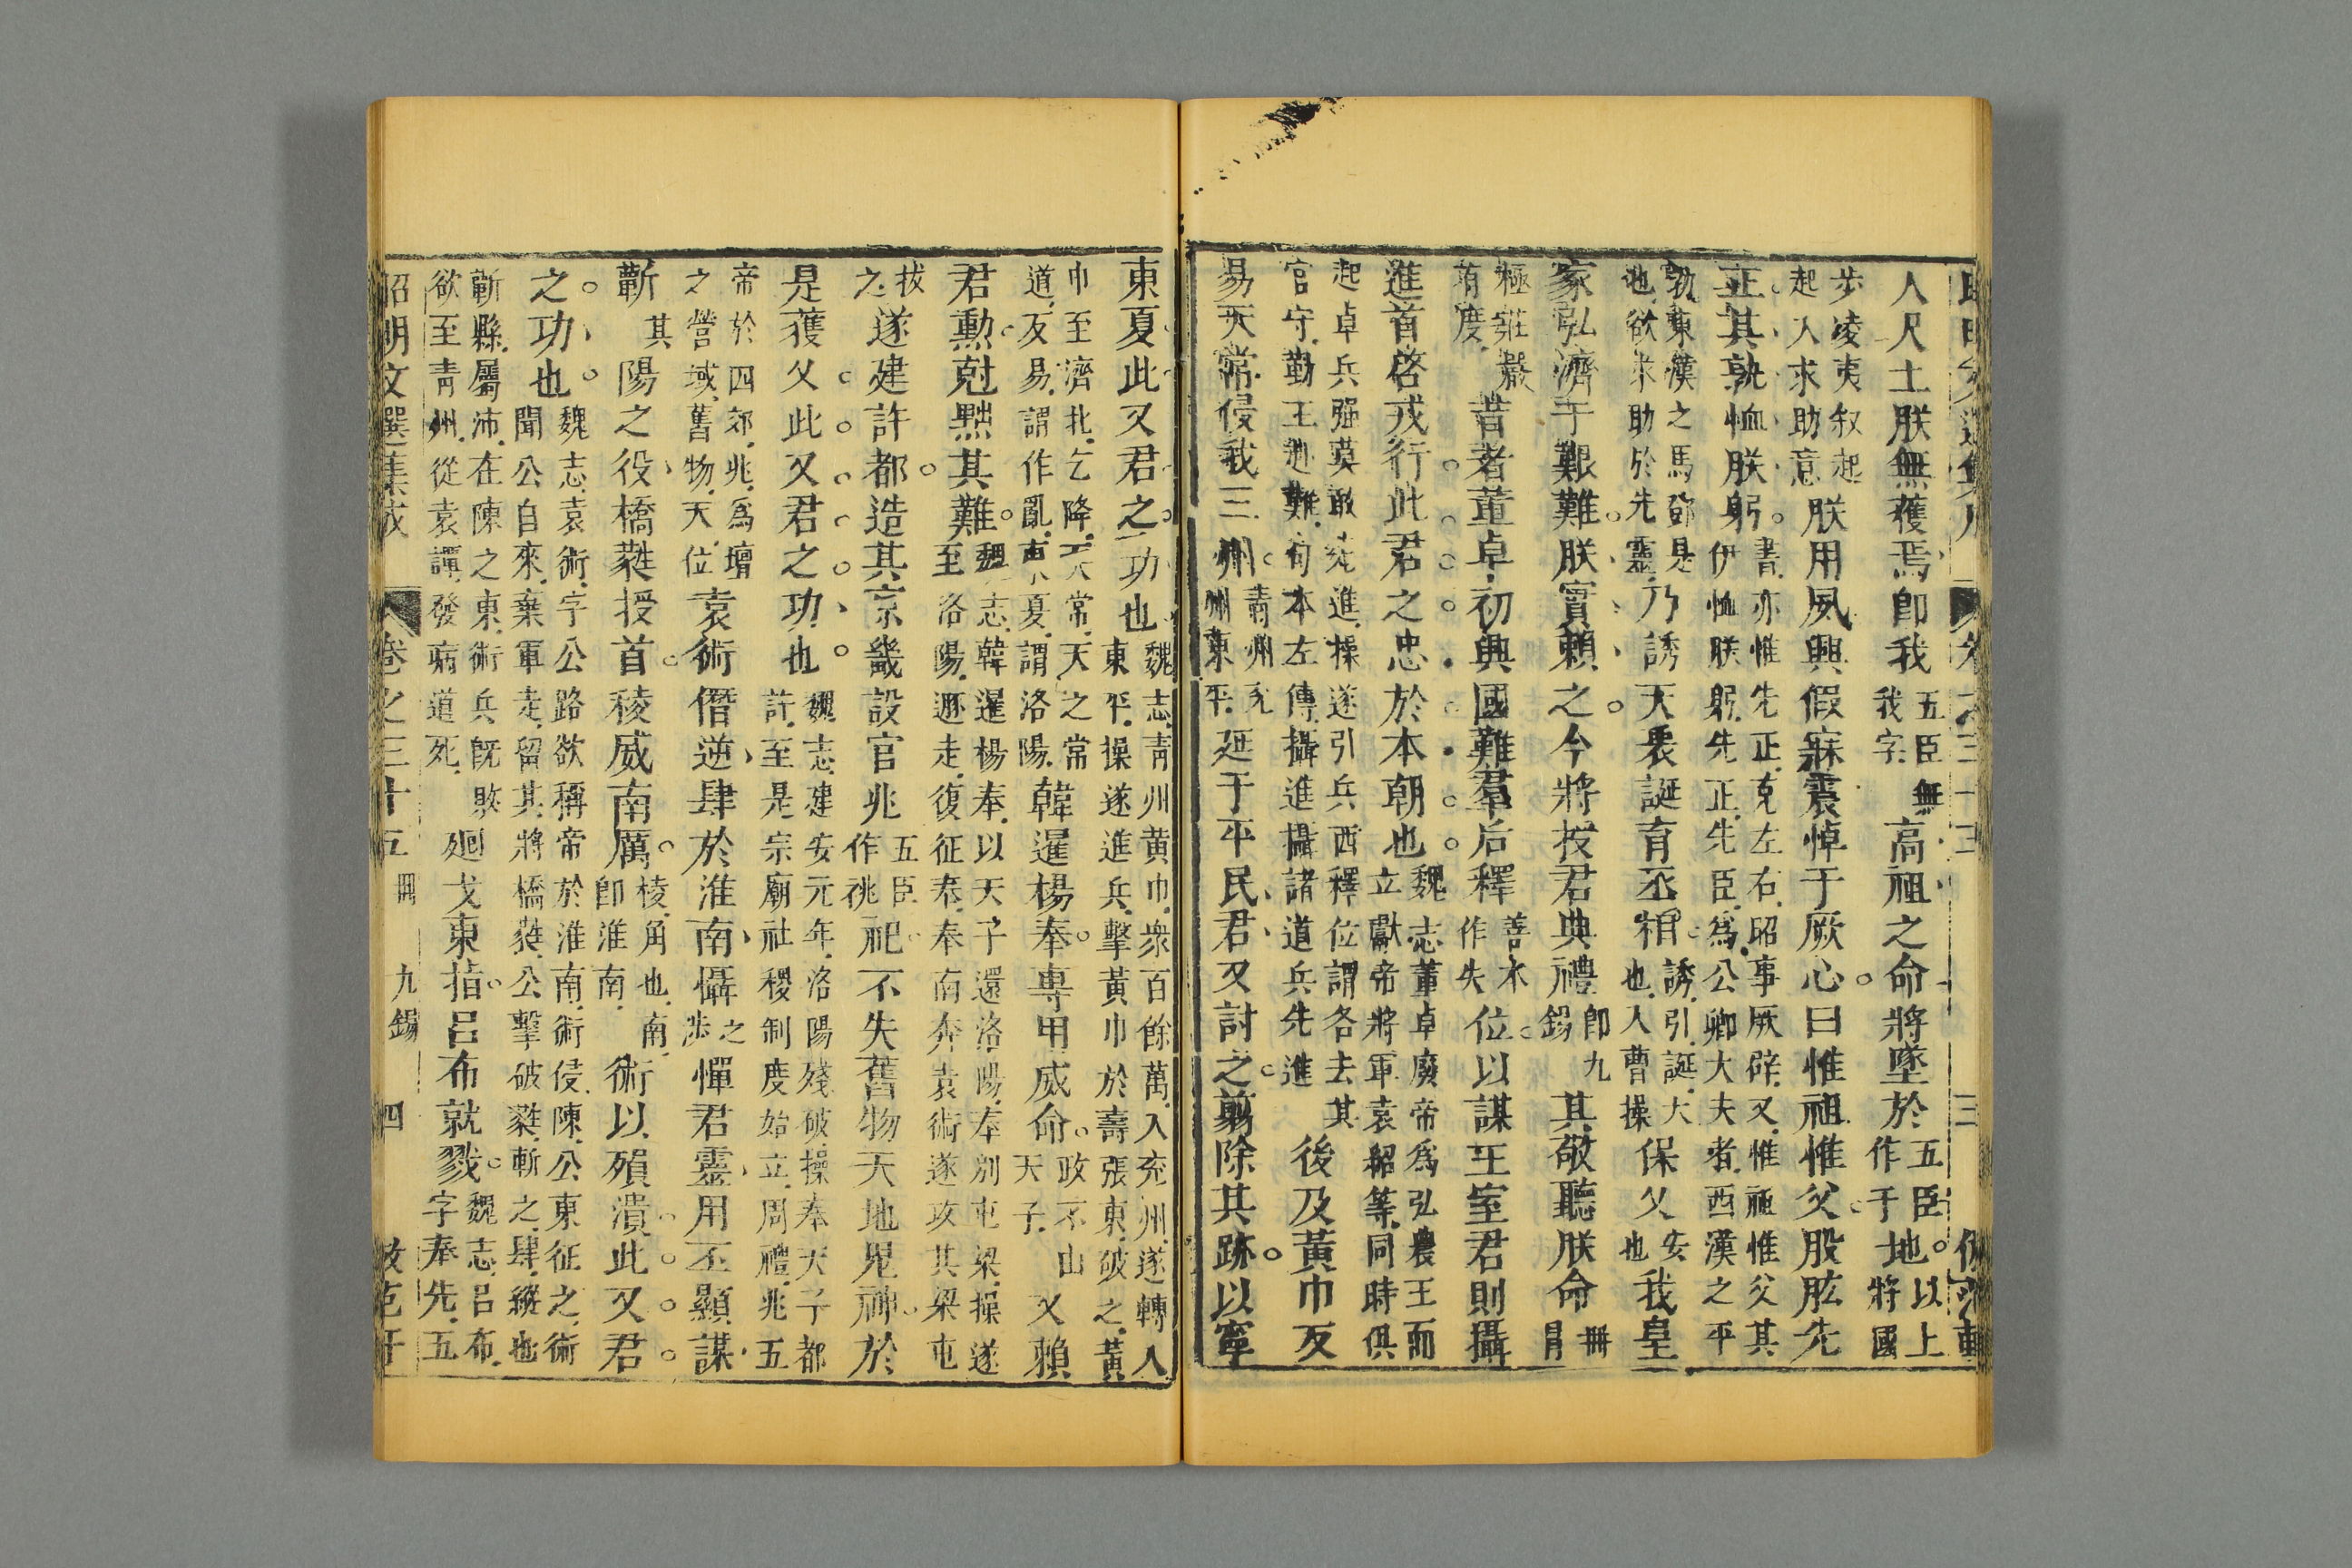 人尺土朕無獲焉卽我五臣無我字高祖之命將墜於五臣作于地以上將國
步凌夷叙起起入求助意朕用夙興假寐震悼于厥心曰惟祖惟父股肱先
正其孰恤朕躬書亦惟先正克左右昭事厥辟又惟祖惟父其伊恤朕躬先正先臣爲公卿大夫者西漢之平
勃東漢之馬鄧是也欲求助於先靈乃誘天衷誕育丞相誘引誕大也人曹操保乂安也我皇
家弘濟于艱難朕實賴之今將授君典禮卽九錫其敬聽朕命冊冒
極莊嚴有度昔者董卓初興國難羣后釋善本作失位以謀王室君則攝
進首啓戎行此君之忠於本朝也魏志董卓廢帝爲弘農王而立獻帝將軍袁紹等同時俱
起卓兵强莫敢先進操遂引兵西釋位謂各去其官守勤王赴難句本左傳攝進攝諸道兵先進後及黃巾反
易天常侵我三州青州兗州東平延于平民君又討之剪除其跡以寧
東夏此又君之功也魏志青州黃巾衆百餘萬入兗州遂轉入東平操遂進兵擊黃巾於壽張東破之黃
巾至濟北乞降天常天之常道反易謂作亂東夏謂洛陽韓暹楊奉專用威命政不山天子又賴
君勳剋黜其難魏志韓暹楊奉以天子還洛陽奉別屯梁操遂至洛陽遯走復征奉奉南奔袁術遂攻其梁屯
拔之遂建許都造其京畿設官兆五臣作祧祀不失舊物天地鬼神於
是獲乂此又君之功也魏志建安元年洛陽殘破操奉天子都許至是宗廟社稷制度始立周禮兆五
帝於四郊兆爲壇之營域舊物天位袁術僭逆肆於淮南懾之涉憚君靈用丕顯謀
蘄其陽之役橋蕤授首稜威南厲稜角也南卽淮南術以殞潰此又君
之功也魏志袁術字公路欲稱帝於淮南術侵陳公東征之術聞公自來棄軍走留其將橋蕤公擊破蕤斬之肆縱也
蘄縣屬沛在陳之東術兵旣敗欲至靑州從袁譚發病道死廻戈東指呂布就戮魏志呂布字奉先五
昭明文選集成 卷之三十五 冊 九錫 四